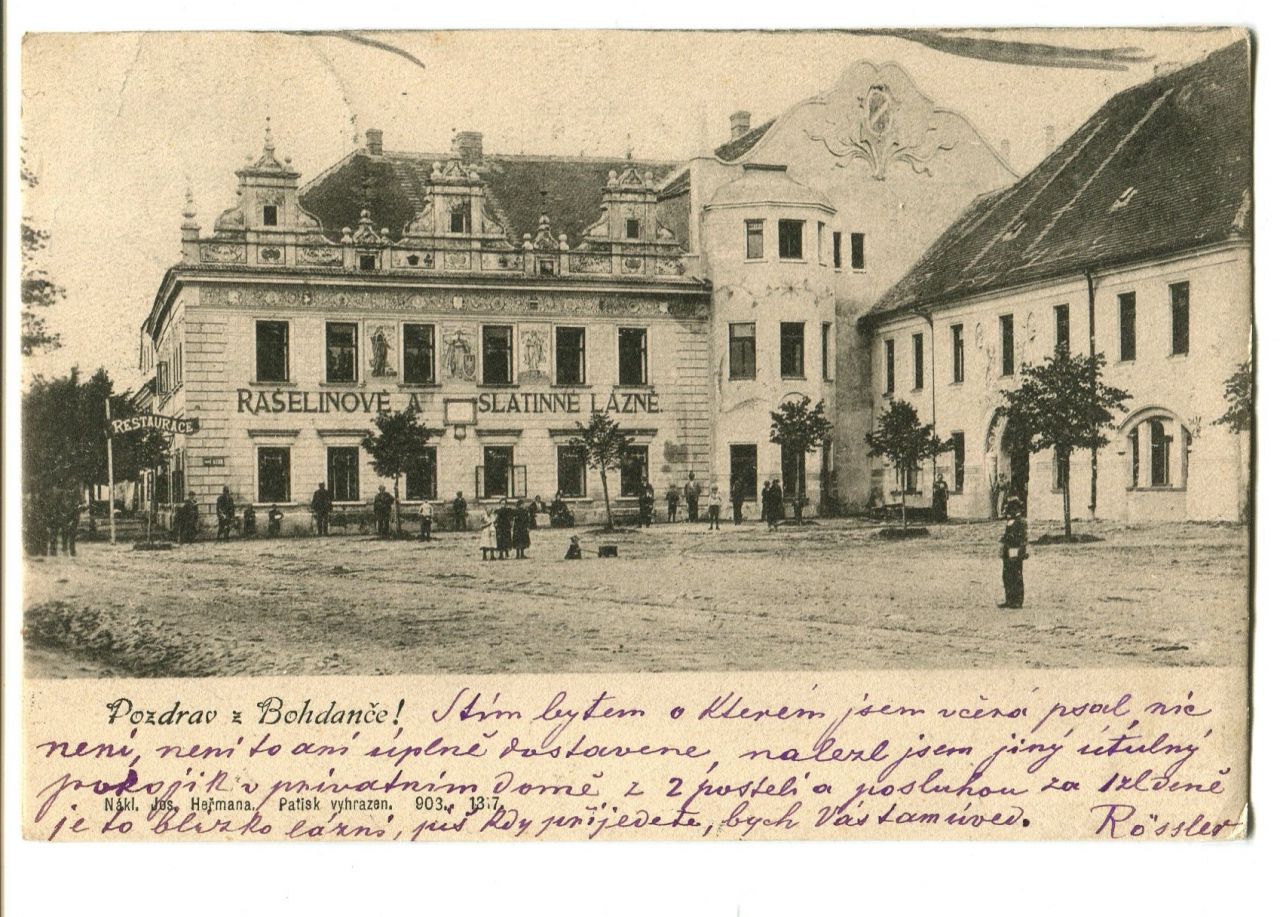 RAŠELINOVÉ A SLATINNÉ LÁZNĚ.
RESTAURACE
Pozdrav z Bohdanče! S tím bytem o kterém jsem včera psal, nic
není, není to ani úplně dostavene, nalezl jsem jiný útulný
pokojik v privatním domě z 2 posteli a posluhou za 1 zl deně
Nákl. Jos. Heřmana. Patisk vyhrazen. 903. 13.7.
je to blizko lázní, piš kdy přijedete, bych Vás tam uved. Rössler